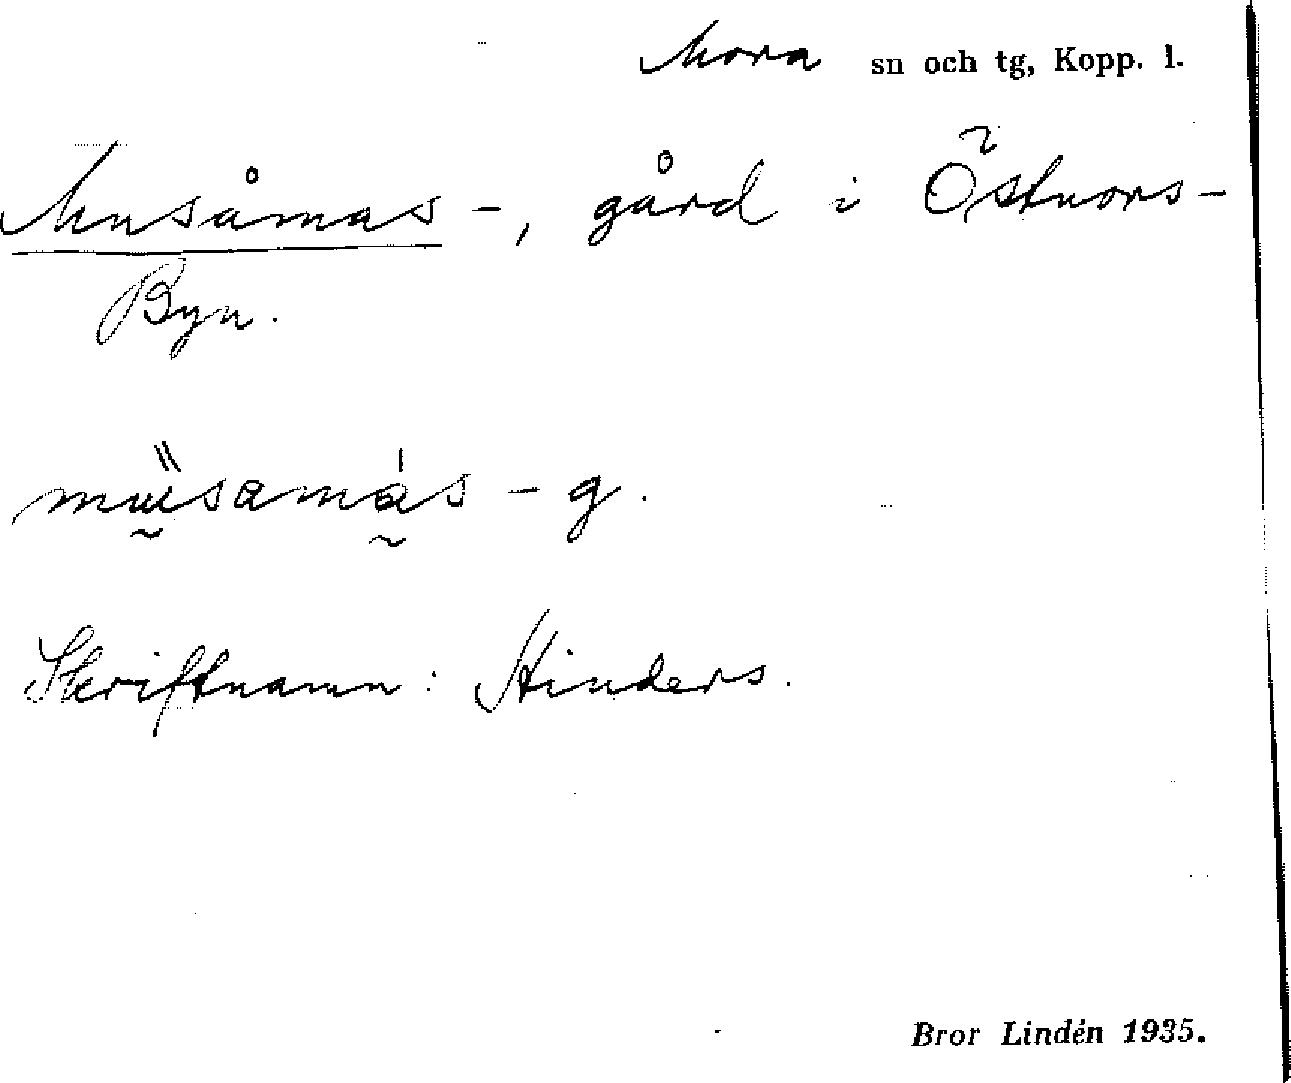 Mora sn och tg, Kopp. l.
Musåmas-, gård i Östnors-
Byn.
müsamás-g.
Skriftnamn: Hinders.
Bror Lindén 1935.